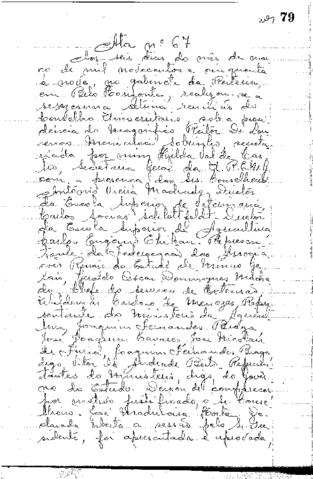 79
Ata nº 67
Aos seis dias do mês de mar
ço de mil novecentos e cinquenta
e nove, no gabinete da Reitoria
em Belo Horizonte, realizou-se a
sexagésima sétima reunião do
Conselho Universitário sob a presi
dência do Magnífico Reitor Dr. Lou
renço Menicucci Sobrinho, secreta
riada por mim Hylda Val de Cas
tro Secretária Geral da U.R.E.M.G.
com a presença dos Srs. Conselheiros
Antônio Vieira Machado, Diretor
da Escola Superior de Veterinária
Carlos Socias Schlottfeldt, Diretor
da Escola Superior de Agricultura
Carlos Eugenio Represen
tante da Federação das Associa
ções Rurais do Estado de Minas Ge
rais, Geraldo Oscar Domingues Macha
do Chefe do Serviço de Extensão,
Cardoso de Menezes Repre
sentante do Ministério da Agricul
tura, Joaquim Fernandes Braga,
José Joaquim Tavares, José
de Faria, Joaquim Fernandes Braga
digo de Andrade Brito, Represen
tantes do Ministério digo do Gover
no do Estado. Deixou de comparecer
por motivo justificado, o Sr. Conse
lheiro José Madureira Horta. De
clarada aberta a sessão pelo Sr. Pre
sidente, foi apresentada e aprovada,